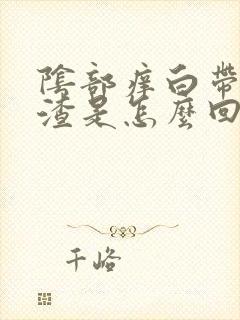 陰部痒白帶
渣是怎麼回
千峪